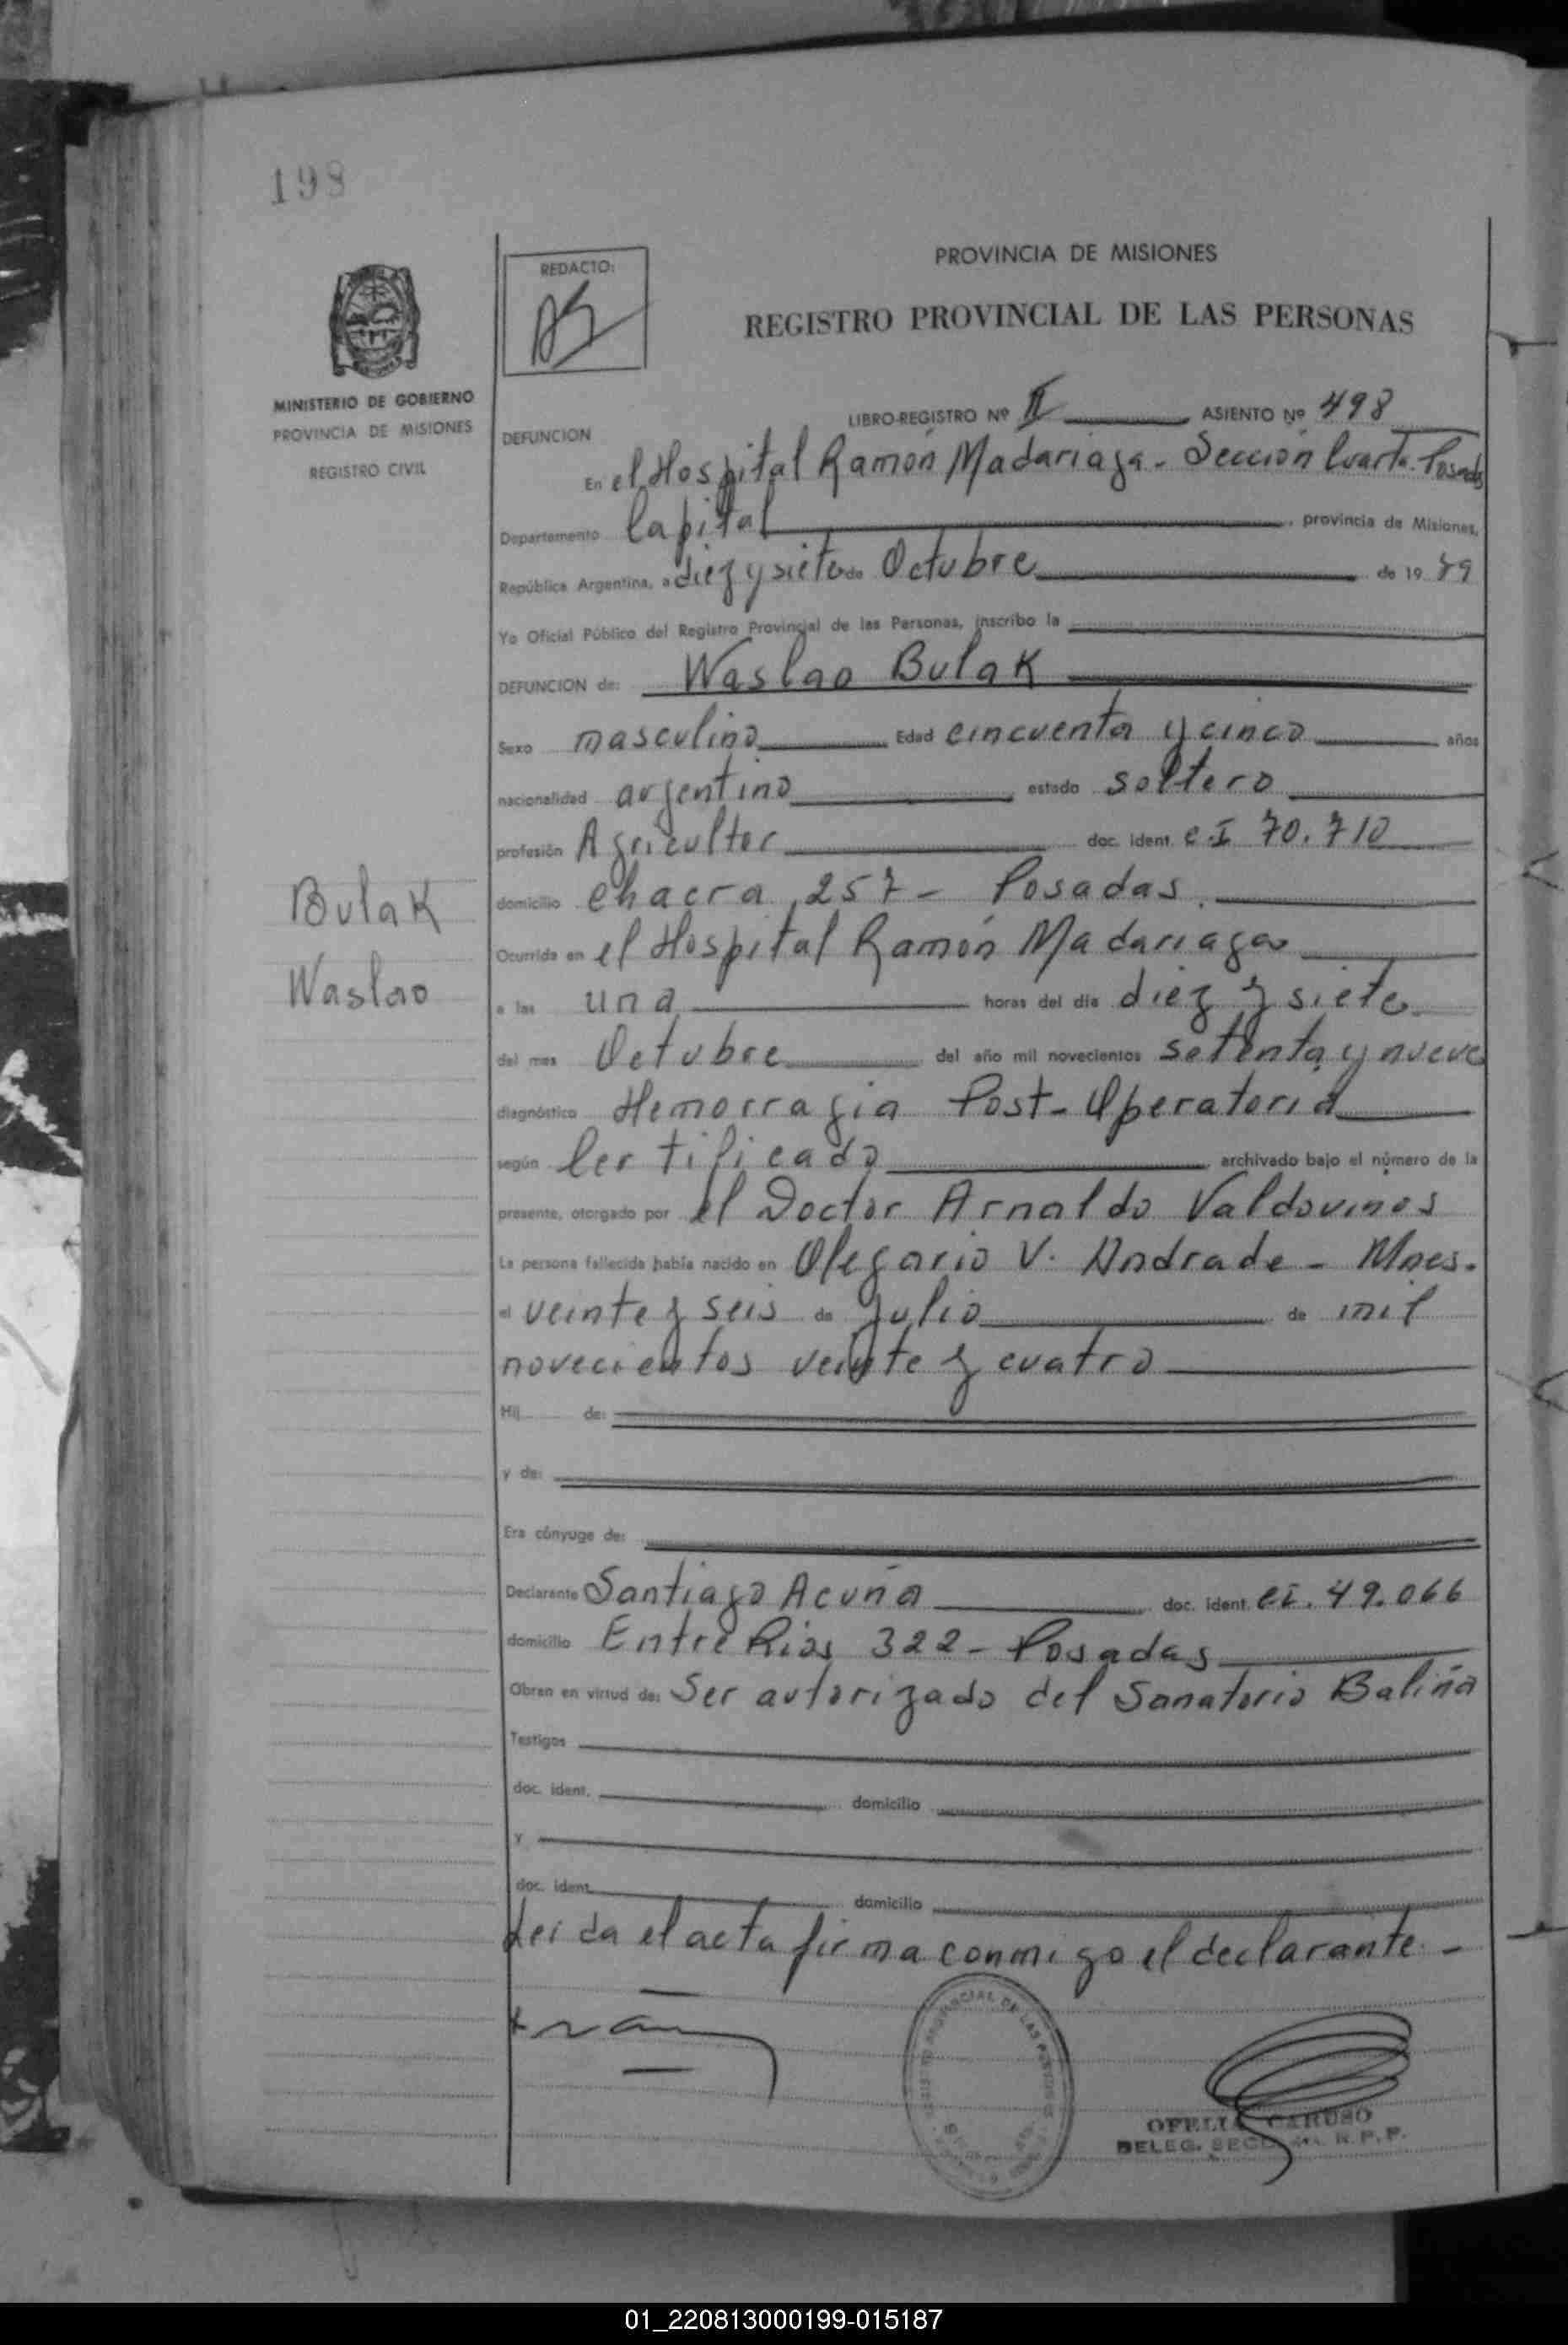 198
PROVINCIA DE MISIONES
REDACTO:
REGISTRO PROVINCIAL DE LAS PERSONAS
MINISTERIO DE GOBIERNO
PROVINCIA DE MISIONES
REGISTRO CIVIL
LIBRO-REGISTRO Nº II ASIENTO Nº 498
DEFUNCION
En el Hospital Ramón Madariaga - Sección Cuarta. Posadas
Departamento Capital, provincia de Misiones,
República Argentina, a diez y siete de Octubre de 19 79
Yo Oficial Público del Registro Provincial de las Personas, inscribo la
DEFUNCION de: Waslao Bulak
Sexo masculino Edad cincuenta y cinco años
nacionalidad argentino estado soltero
profesión Agricultor doc. ident. C.I 70.710
domicilio chacra 257 - Posadas.
Bulak
Waslao
Ocurrida en el Hospital Ramón Madariaga
a las una horas del día diez y siete
del mes Octubre del año mil novecientos setenta y nueve
diagnóstico Hemorragia Post-Operatoria
según Certificado archivado bajo el número de la
presente, otorgado por el Doctor Arnaldo Valdovinos
La persona fallecida había nacido en Olegario V. Andrade - Mnes.
el veinte y seis de Julio de mil
novecientos veinte y cuatro
Hij de:
y de:
Era cónyuge de:
Declarante Santiago Acuña doc. ident. CI. 49.066
domicilio Entre Rios 322 - Posadas
Obran en virtud de: Ser autorizado del Sanatorio Baliña
Testigos
doc. ident. domicilio
y
doc. ident. domicilio
Leida el acta firma conmigo el declarante. -
OFELIA CARUSO
DELEG. R.P.P.
01_220813000199-015187